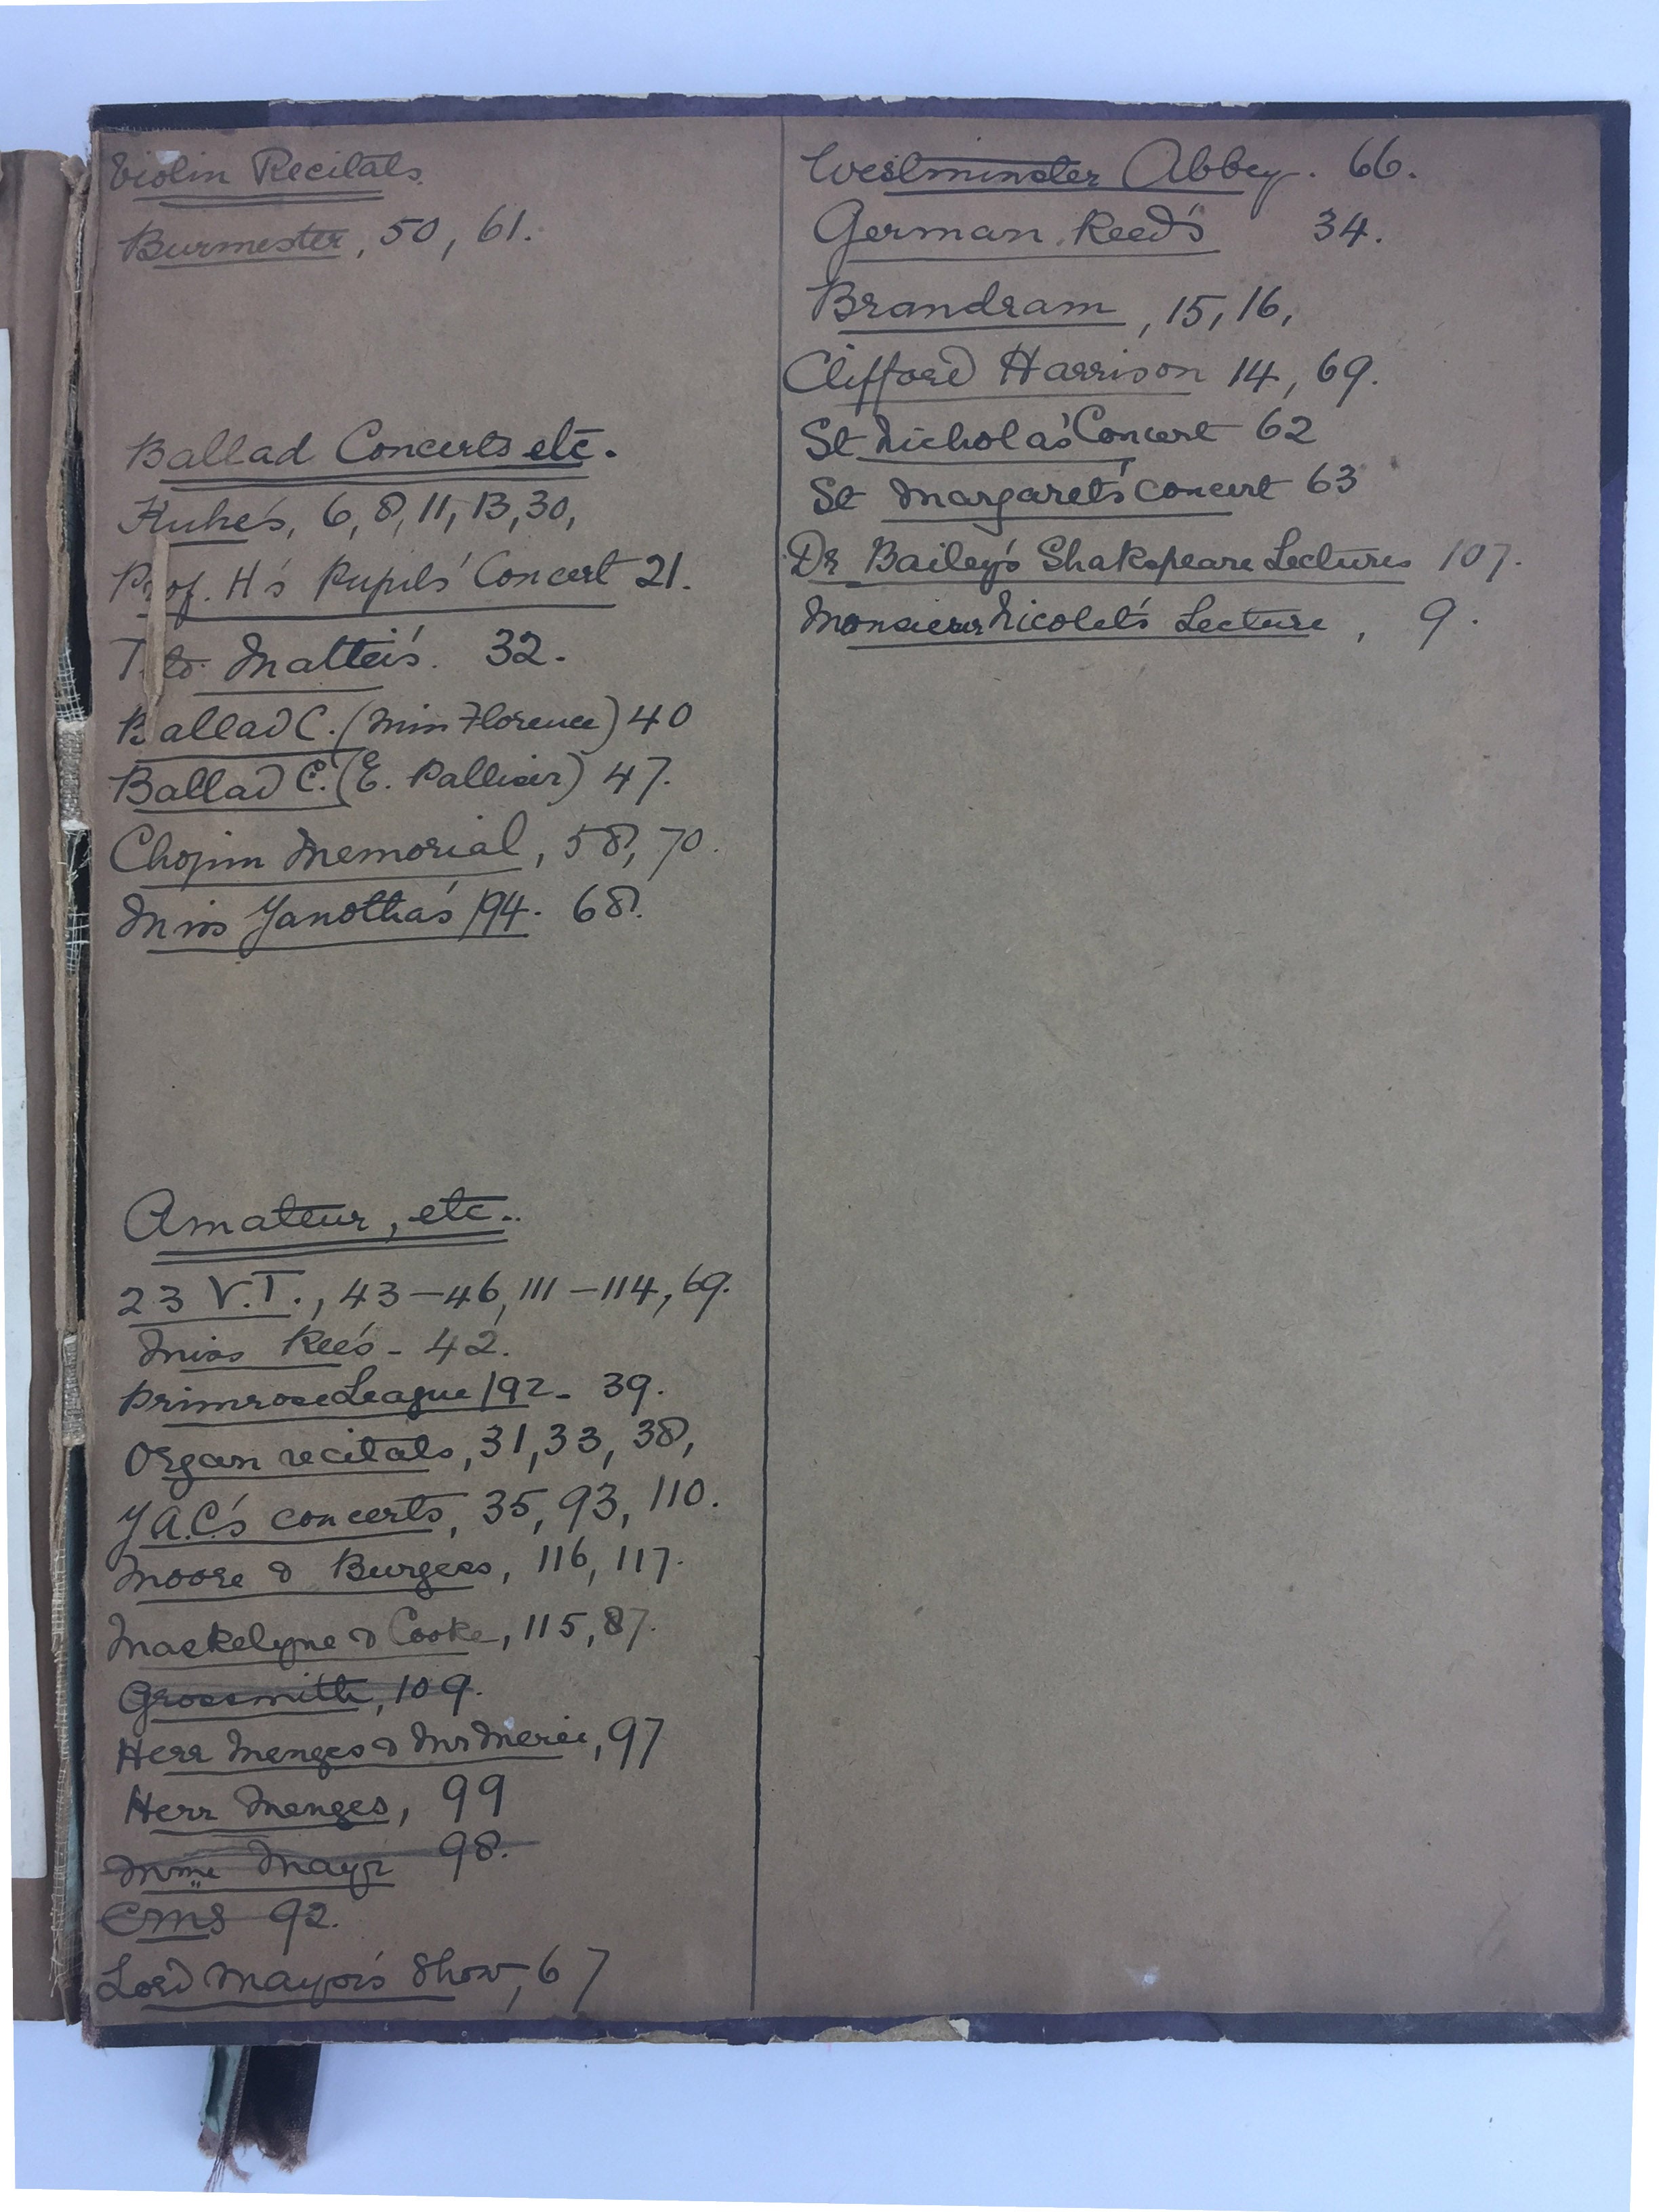 Violin Recitals
Burmester, 50, 61.
Ballad Concerts etc.
Kuhe's, 6, 8, 11, 13, 30,
Prof. H's Pupils' Concert 21.
Tito Mattei's. 32.
Ballad C. (Miss Florence) 40
Ballad C. (E. Palliser) 47.
Chopin Memorial, 58, 70.
Miss Janotha's /94. 68.
Amateur, etc..
23 V.T., 43-46, 111-114, 69.
Miss Ree's - 42.
Primrose League /92- 39.
Organ recitals, 31, 33, 38,
Y.A.C.'s concerts, 35, 93, 110.
Moore & Burgess, 116, 117.
Maskelyne & Cooke, 115, 87.
Grossmith, 109.
Herr Menges & Mr, 97
Herr Menges, 99
Mme Mayr 98.
CMS 92.
Lord Mayor's Show, 67
Westminster Abbey. 66.
German Reed's 34.
Brandram, 15, 16,
Clifford Harrison 14, 69.
St Nicholas' Concert 62
St Margaret's Concert 63
Dr Bailey's Shakspeare Lectures 107.
Monsieur Nicolet's Lecture, 9.